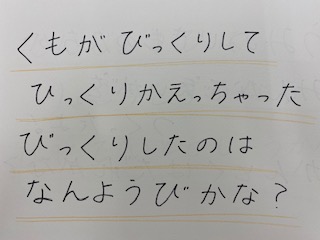 くもがびっくりして
ひっくりかえっちゃった
びっくりしたのは
なんようびかな?